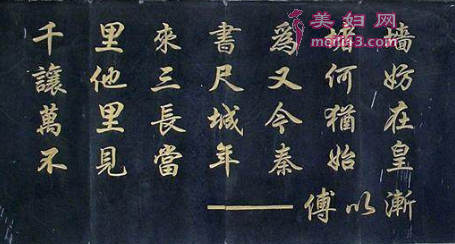 千里來書為堵墙
讓他三尺又何妨
萬里長城今猶在
不見當年秦始皇
——傅以漸
美妇网